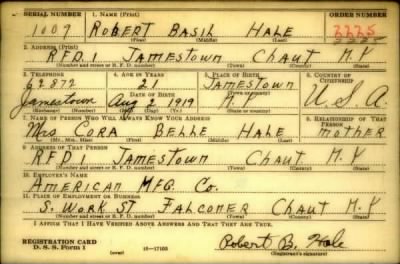 SERIAL NUMBER 1. NAME (Print) ORDER NUMBER
1009 ROBERT BASIL HALE 2225
(First) (Middle) (Last)
2. ADDRESS (Print)
RFD1 JAMESTOWN CHAUT N.Y
(Number and street or R. F. D. number) (Town) (County) (State)
3. TELEPHONE 4. AGE IN YEARS 5. PLACE OF BIRTH 6. COUNTRY OF CITIZENSHIP
21 JAMESTOWN
DATE OF BIRTH
Jamestown Aug 2 1919 N.Y U.S.A.
(Exchange) (Mo.) (Day) (Yr.) (State or country)
7. NAME OF PERSON WHO WILL ALWAYS KNOW YOUR ADDRESS 8. RELATIONSHIP OF THAT PERSON
Mrs CORA BELLE HALE mother
(Mr., Mrs., Miss) (First) (Middle) (Last)
9. ADDRESS OF THAT PERSON
RFD1 JAMESTOWN CHAUT N.Y
(Number and street or R. F. D. number) (Town) (County) (State)
10. EMPLOYER'S NAME
AMERICAN MFG. CO.
11. PLACE OF EMPLOYMENT OR BUSINESS
S. WORK ST FALCONER CHAUT N.Y
(Number and street or R. F. D. number) (Town) (County) (State)
I AFFIRM THAT I HAVE VERIFIED ABOVE ANSWERS AND THAT THEY ARE TRUE.
REGISTRATION CARD
D. S. S. Form 1 (over) 16-17105
Robert B. Hale
(Registrant's signature)